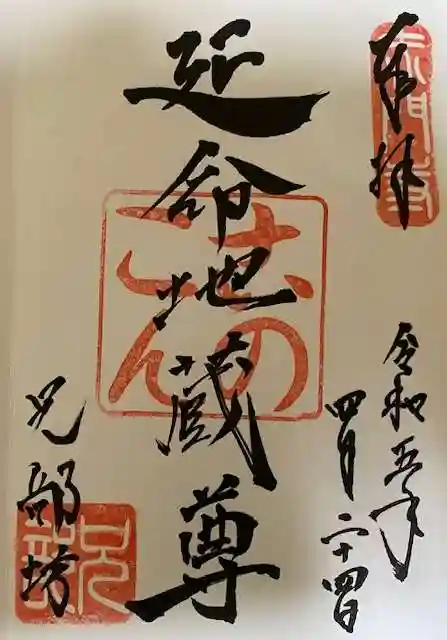 奉拝
令和五年
四月二十四日
延命地蔵尊
兄部坊